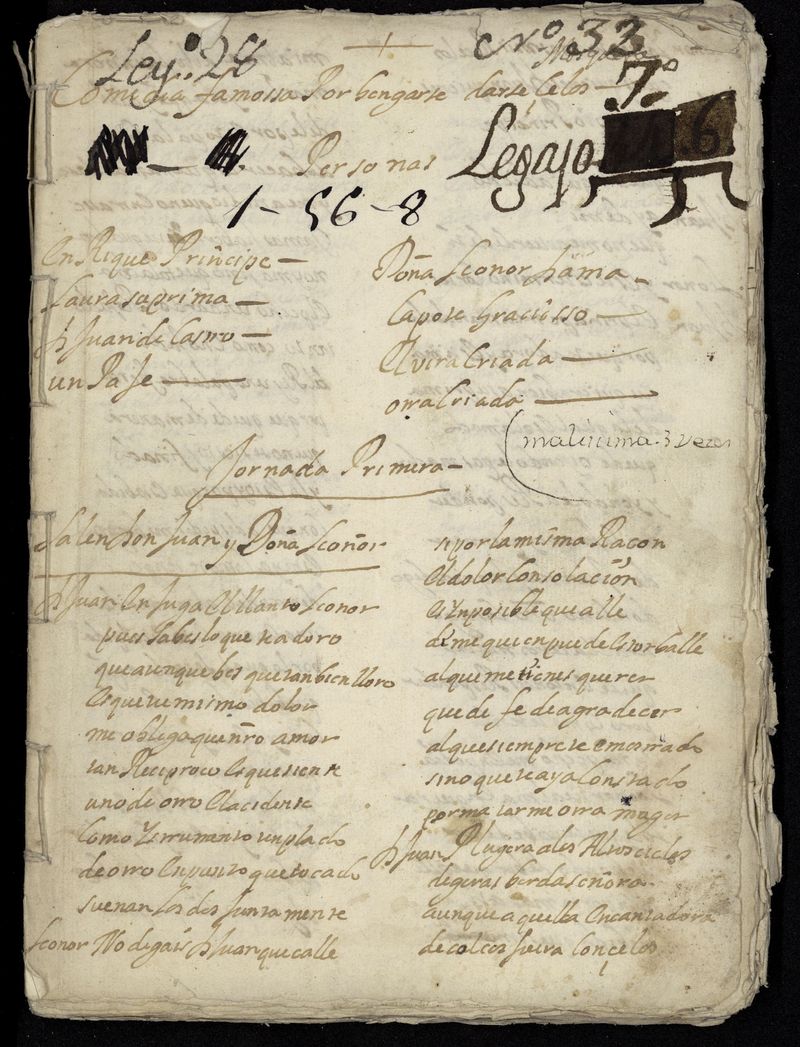 Leg.º 28
Nº 33
Comedia famossa Por bengarse darse çelos
7º
Legajo 6
Personas
1-56-8
en Rique Prinçipe
Laura su prima
D Juan de Castro
un Paje
Doña Leonor dama
Capote Graciosso
Elvira Criada
otra Criada
malissima 3 vezes
Jornada Primera
Salen Don Juan y Doña Leonor
D Juan Enjuga El llanto Leonor
pues sabes lo que te adoro
que aunque bes que tanbien lloro
es que tu mismo dolor
me obliga que nro amor
tan Reciproco es que siente
uno de otro El acidente
Como Ynstrumento templado
de otro En punto que tocado
suenan los dos juntamente
Leonor No digais D Juan que calle
si por la misma Raçon
El dolor Consolaçion
es Ynposible que alle
dime quien puede estorballe
al que me tienes querer
que de fe de agradecer
al que siempre te e mostrado
sino que te aya Constado
por matarme otra muger
D Juan Plugiera a les Altos cielos
de geras berda señora
aunque aquella Encantadora
de colcos fuera Con çelos